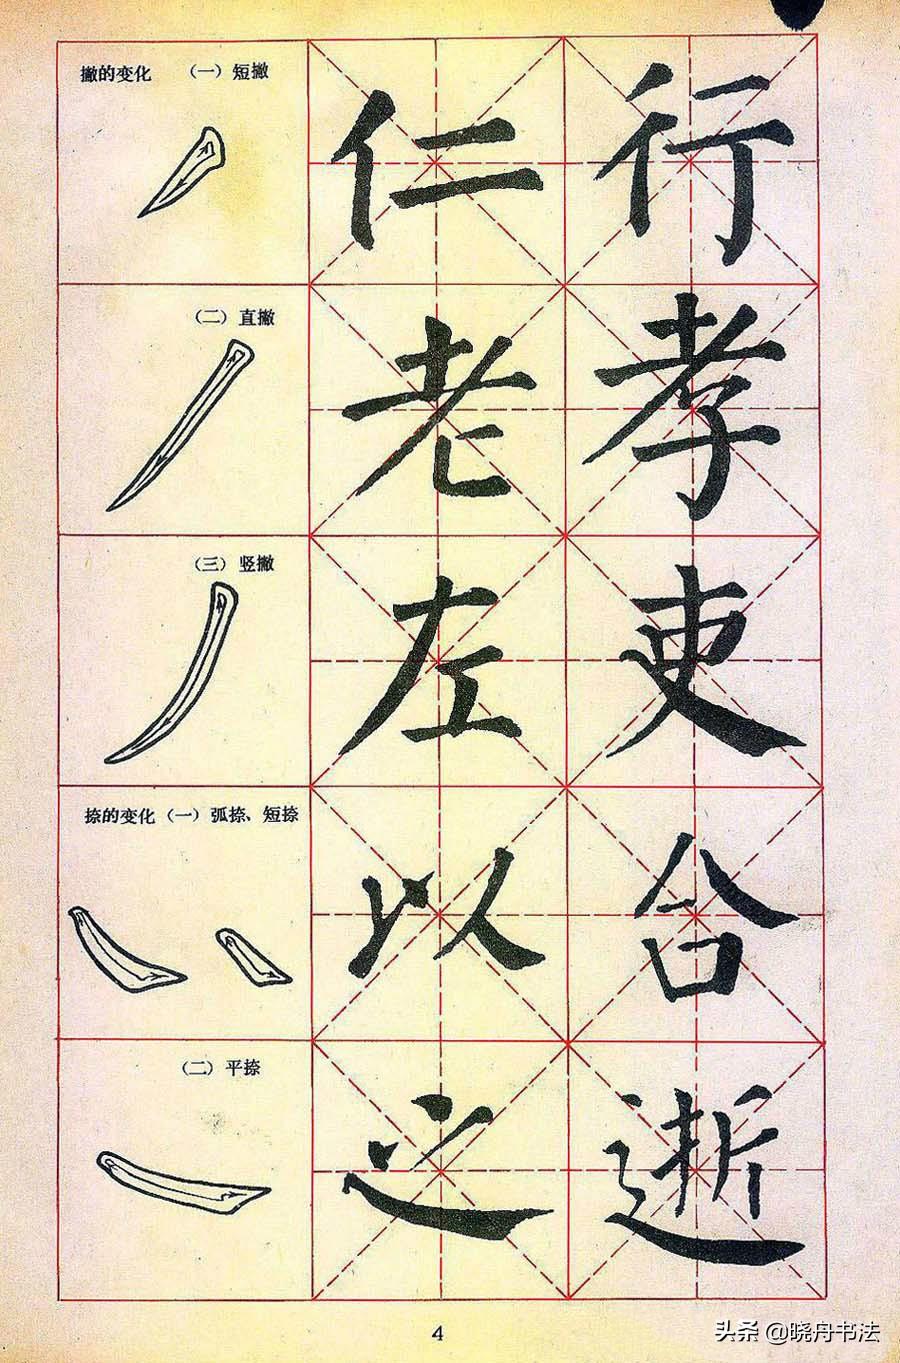 撇的变化 （一）短撇
仁 行
（二）直撇
老 孝
（三）竖撇
左 吏
捺的变化（一）弧捺、短捺
以 合
（二）平捺
之 逝
4
头条 @晓舟书法